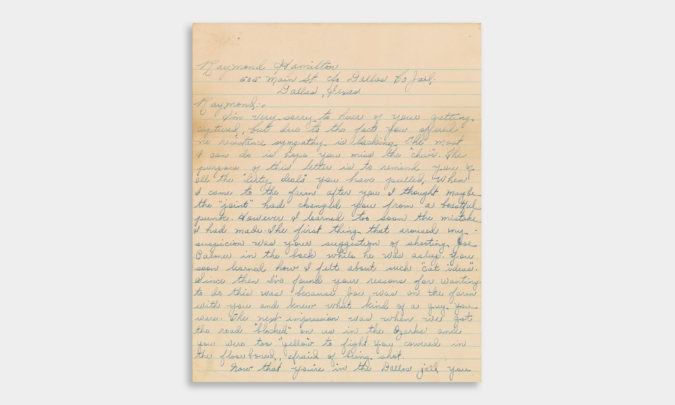 Raymond Hamilton
505 Main St c/o Dallas Co Jail
Dallas, Texas
Raymond:-
I'm very sorry to hear of your getting
captured, but due to the fact you offered
no resistence sympathy is lacking. The most
I can do is hope you miss the "chair". The
purpose of this letter is to remind you of
all the "dirty deals" you have pulled. When
I came to the farm after you I thought maybe
the "joint" had changed you from a boastful
punk. However I learned too soon the mistake
I had made. The first thing that aroused my
suspicion was your suggestion of shooting Joe
Palmer in the back while he was asleep. You
soon learned how I felt about such "cat ideas".
Since then I've found your reasons for wanting
to do this was because Joe was on the farm
with you and knew what kind of a guy you
were. The next impression was when we got
the road "blocked" on us in the Ozarks and
you were too "yellow" to fight. You cowered in
the floorboard, afraid of being shot.
Now that you're in the Dallas jail you